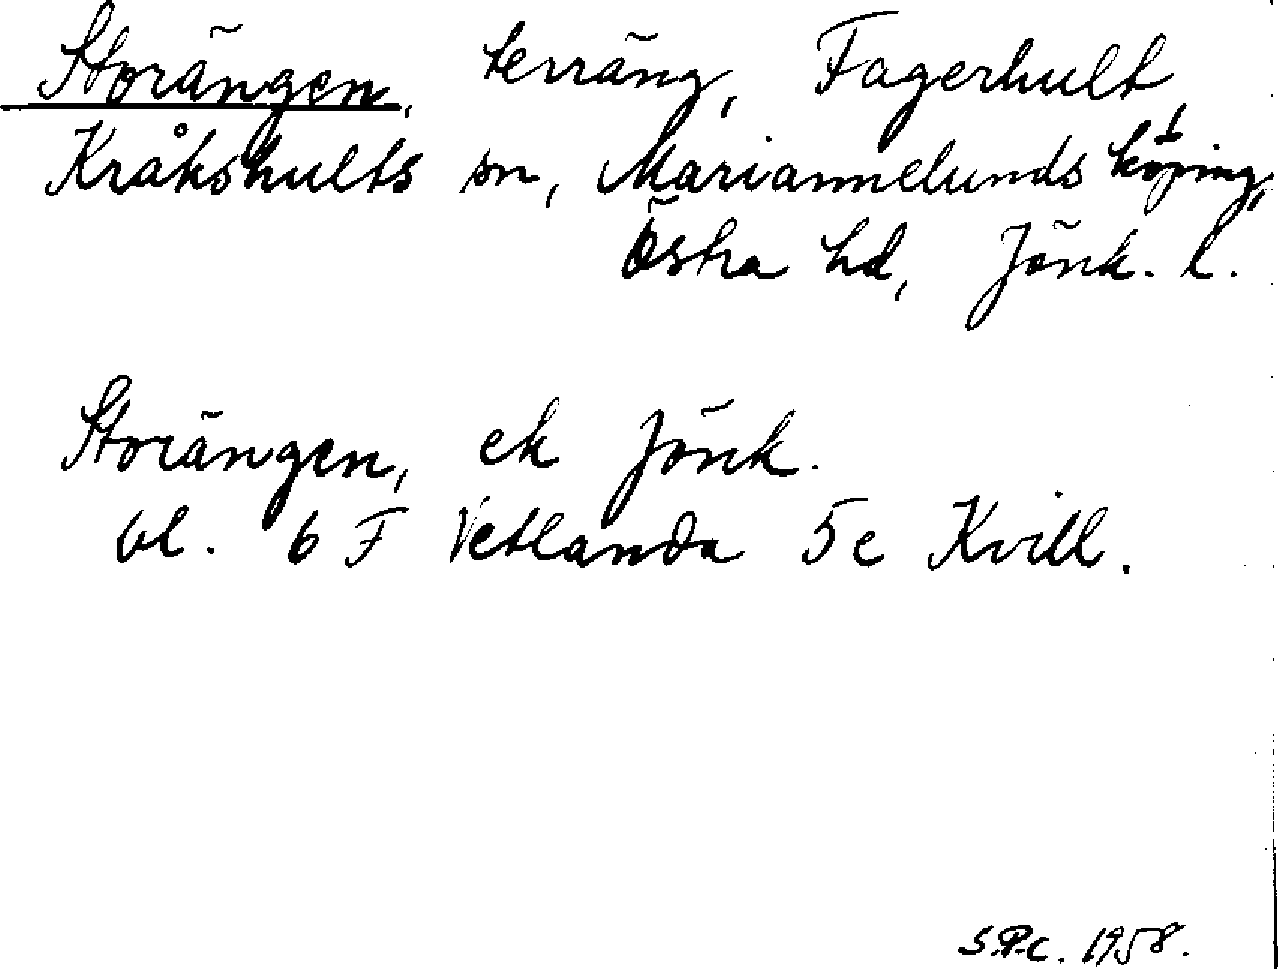 Storängen, terräng, Fagerhult,
Kråkshults sn, Mariannelunds köping,
Östra hd, Jönk. l.
Storängen, ek Jönk.
bl. 6 F Vetlanda 5 c Kvill.
S.P.C. 1958.